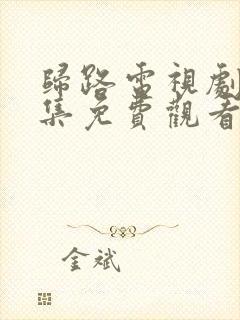 歸路雷視劇
集免費觀看
金斌